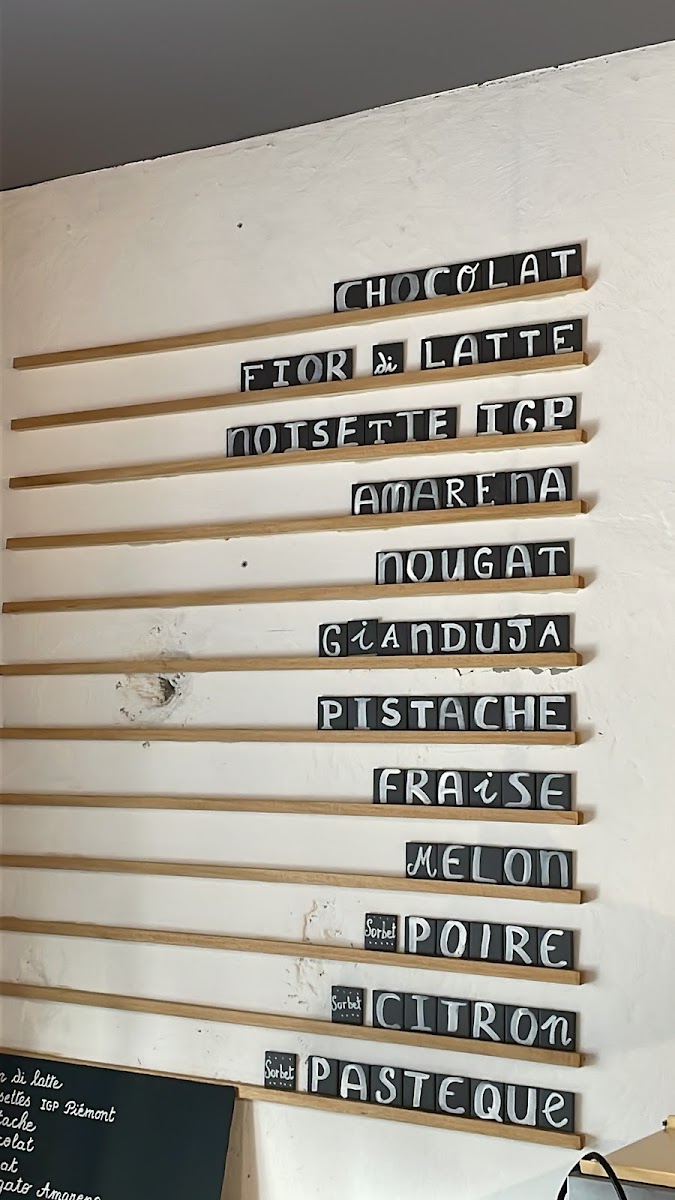 CHOCOLAT
FIOR di LATTE
NOISETTE IGP
AMARENA
NOUGAT
GiANDUJA
PISTACHE
FRAiSE
MELON
Sorbet POIRE
Sorbet CITRON
Sorbet PASTEQUe
di latte
IGP Piémont
Amarena